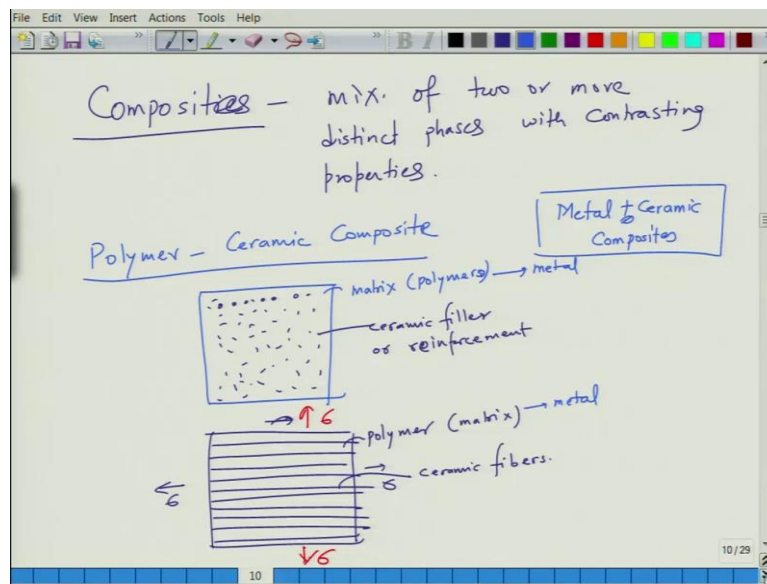 File Edit View Insert Actions Tools Help
B I
Composites - mix. of two or more
distinct phases with contrasting
properties.
Metal + Ceramic
Composites
Polymer - Ceramic Composite
matrix (polymers) → metal
ceramic filler
or reinforcement
↑ σ
polymer (matrix) → metal
→
σ
ceramic fibers.
←
σ
↓ σ
10/29
10